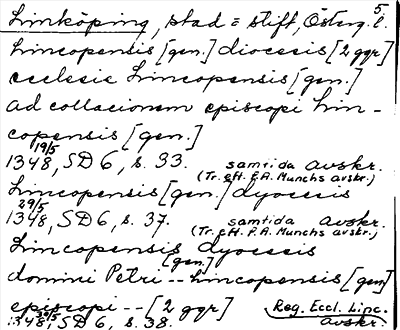 Linköping, stad o stift, Österg. l. 5
Lincopensis [gen.] diocesis [2 ggr]
ecclesie Lincopensis [gen.]
ad collacionem episcopi Lin-
copensis [gen.]
1348 19/5, SD 6, s. 33. samtida avskr.
(Tr. eft. P.A. Munchs avskr.)
Lincopensis [gen.] dyocesis
1348 29/5, SD 6, s. 37. samtida avskr.
(Tr. eft. P.A. Munchs avskr.)
Lincopensis dyocesis
[gen.]
domini Petri -- Lincopensis [gen]
episcopi -- [2 ggr] Reg. Eccl. Linc.
1348 29/5, SD 6, s. 38. avskr.